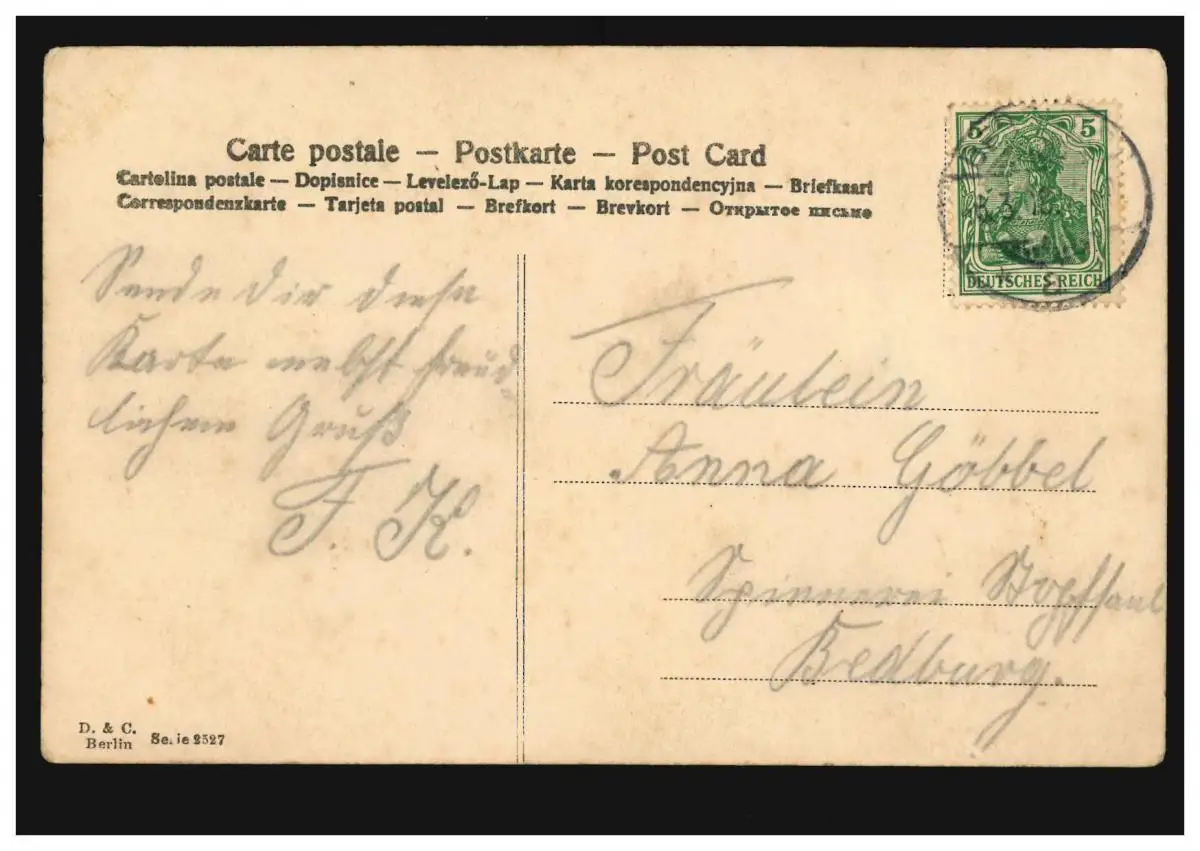 Carte postale — Postkarte — Post Card
Cartolina postale — Dopisnice — Levelező-Lap — Karta korespondencyjna — Briefkaart
Correspondenzkarte — Tarjeta postal — Brefkort — Brevkort — Открытое письмо
5 5
DEUTSCHES REICH
Sende Dir diese
Karte nebst freud
lichem Gruß
F. K.
Fräulein
Anna Göbbel
Spinnerei
Bedburg.
D. & C.
Berlin
Serie 2527